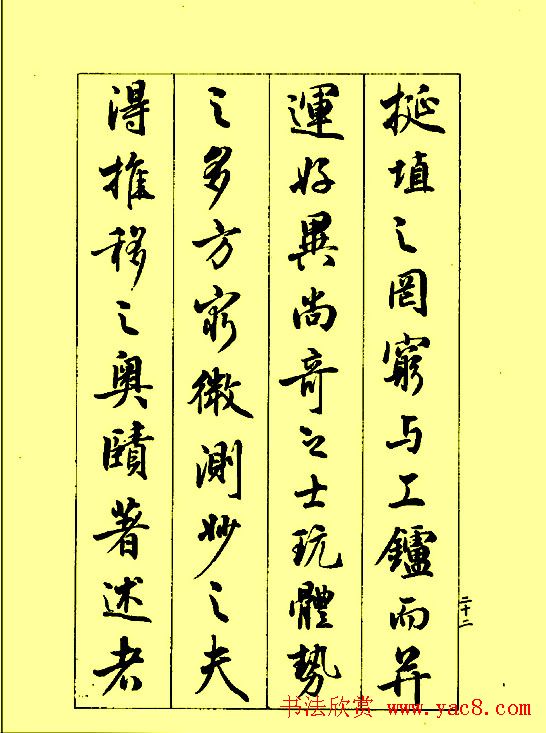 挻埴之罔窮与工鑪而并
運好異尚奇之士玩體勢
之多方穷微測妙之夫
得推移之奧賾著述者
二十二
书法欣赏 www.yac8.com